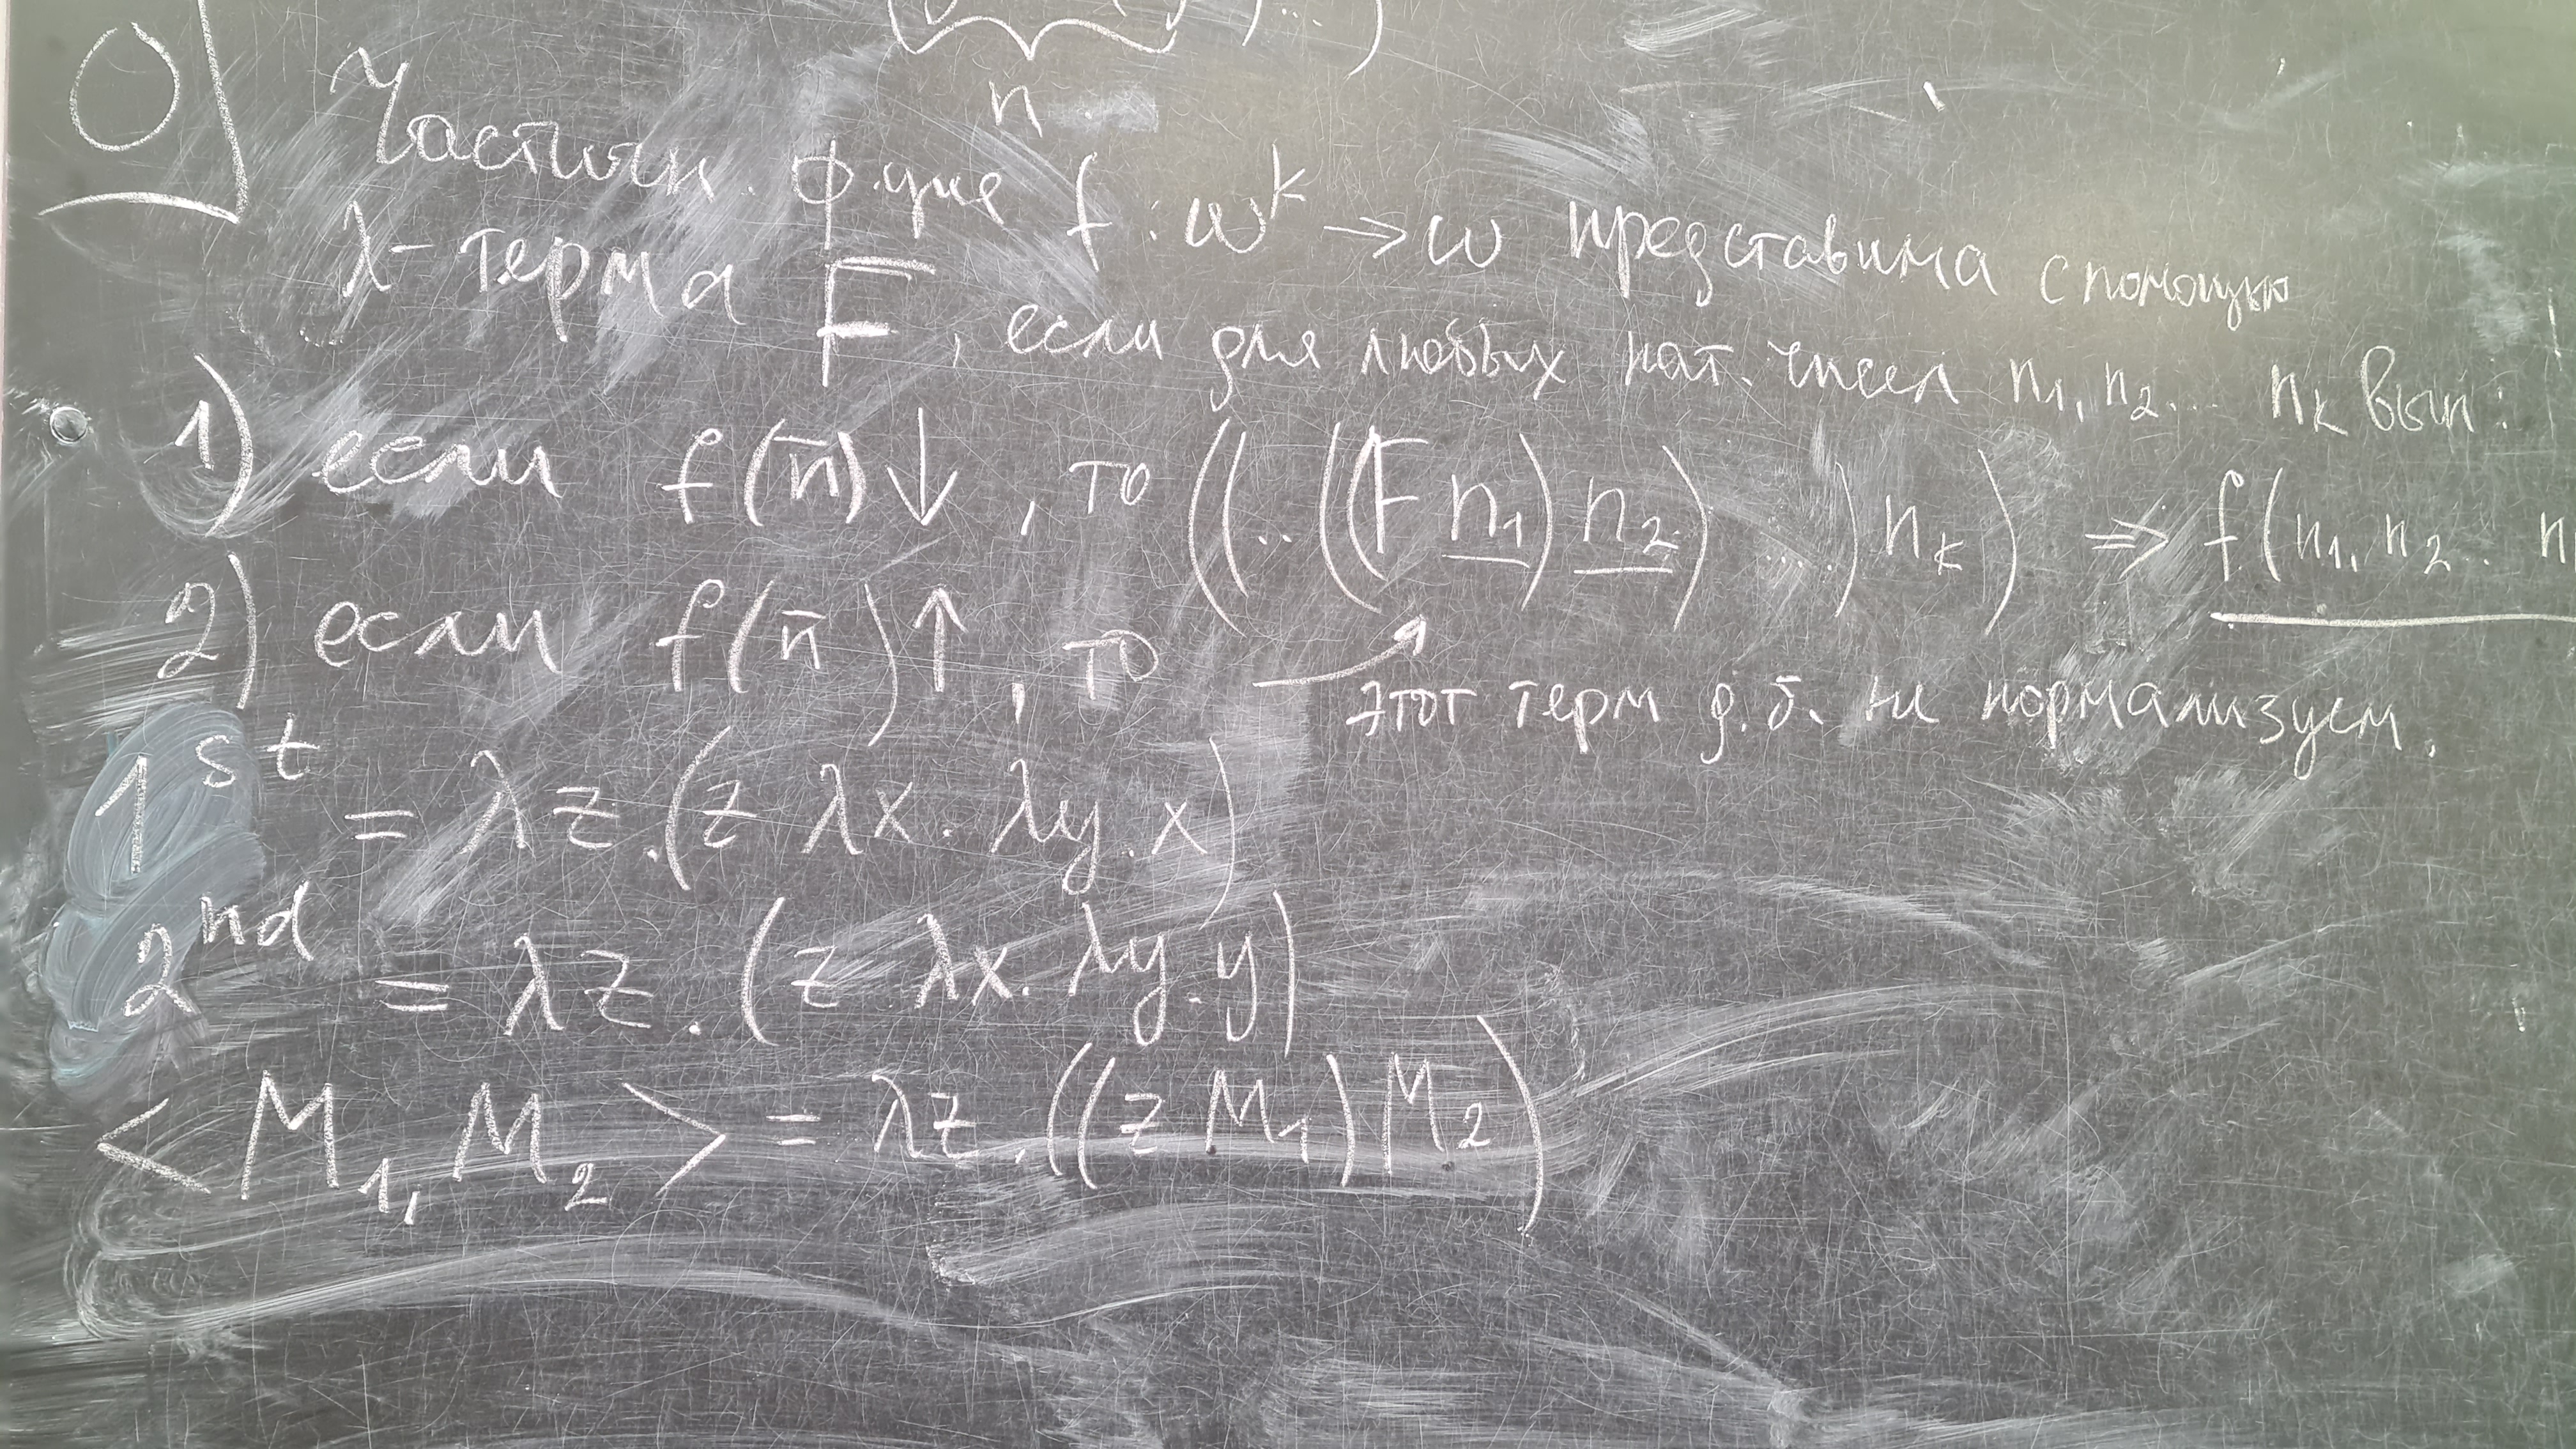 n
О Частичн. ф-ция f : ω^k → ω представима с помощью
λ-терма F, если для любых нат. чисел n₁, n₂... n_k вып:
1) если f(n̅)↓, то ((..((F n₁) n₂) ....) n_k) ⇒ f(n₁, n₂.. n
2) если f(n̅)↑, то этот терм д.б. не нормализуем.
1^st = λz.(z λx. λy. x)
2^nd = λz.(z λx. λy. y)
<M₁, M₂> = λz.((z M₁) M₂)